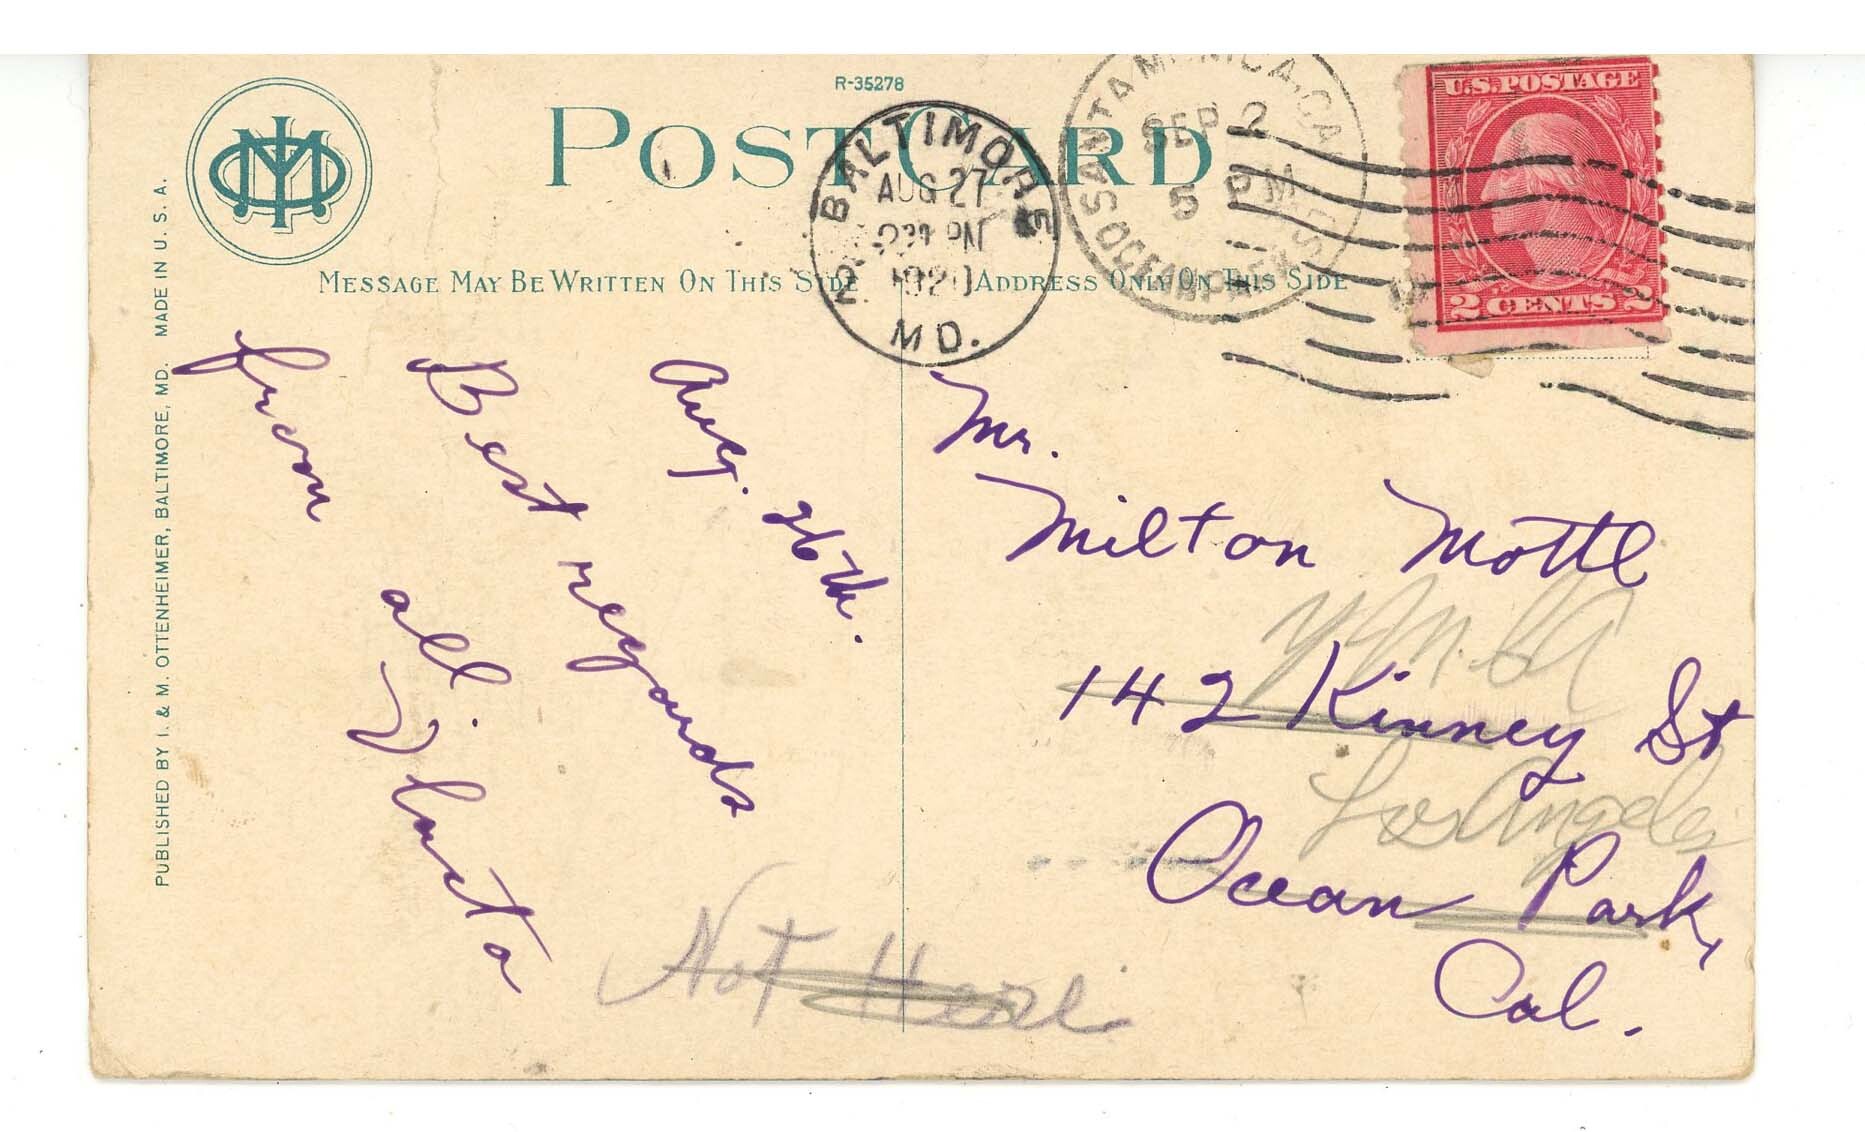 R-35278
POST CARD
MESSAGE MAY BE WRITTEN ON THIS SIDE
ADDRESS ONLY ON THIS SIDE
BALTIMORE
AUG 27
PM
1920
MD.
SANTA MONICA, CAL
SEP 2
5 PM
OCEAN PARK
U.S. POSTAGE
2 CENTS 2
PUBLISHED BY I. & M. OTTENHEIMER, BALTIMORE, MD. MADE IN U. S. A.
Aug. 26th.
Best regards
from all
Mr.
Milton Mottl
Y.M.C.A
142 Kinney St
Los Angeles
Ocean Park,
Cal.
Not Here